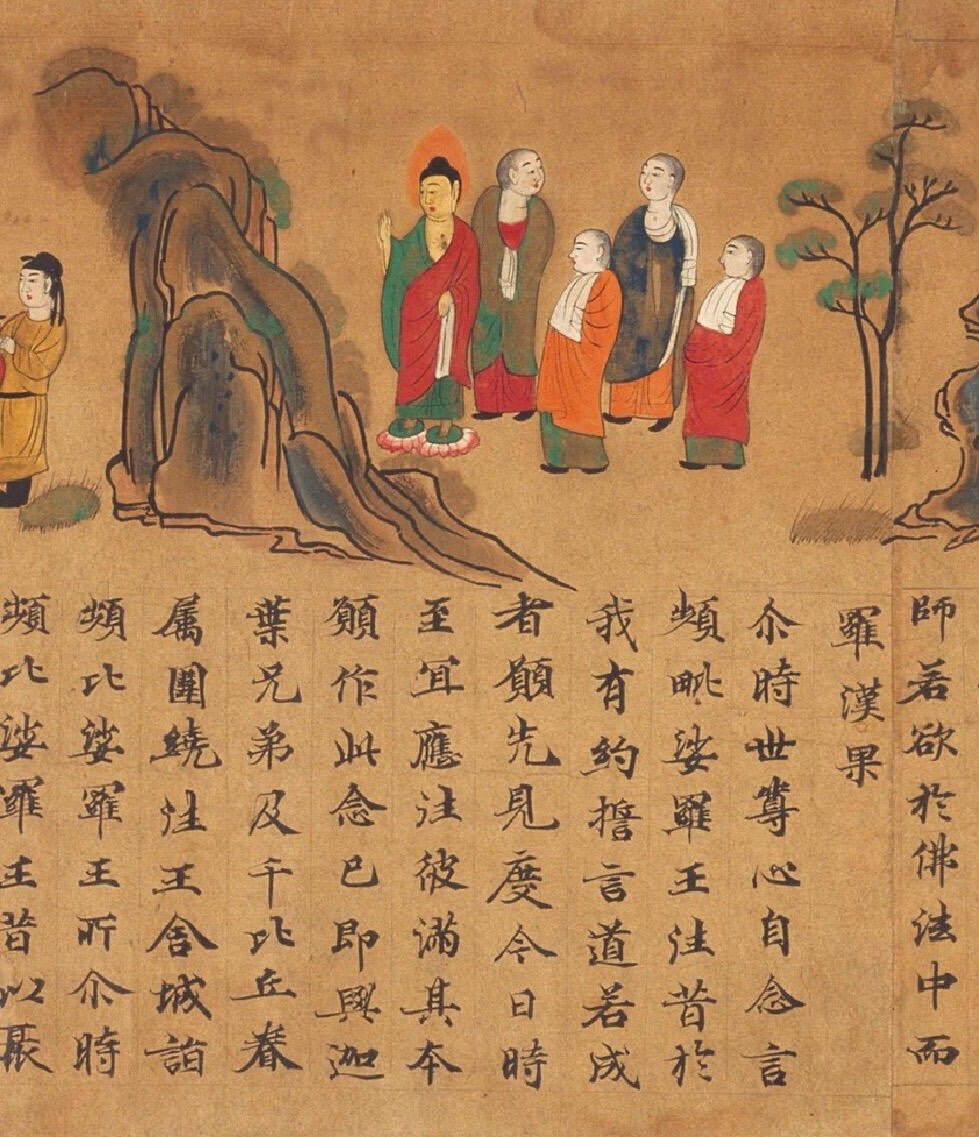 師若欲於佛法中而
羅漢果
尒時世尊心自念言
頻毗娑羅王往昔於
我有約誓言道若成
者願先見度今日時
至宜應往彼滿其本
願作此念已即與迦
葉兄弟及千比丘眷
属圍繞往王舍城詣
頻比娑羅王所尒時
頻比娑羅王昔以